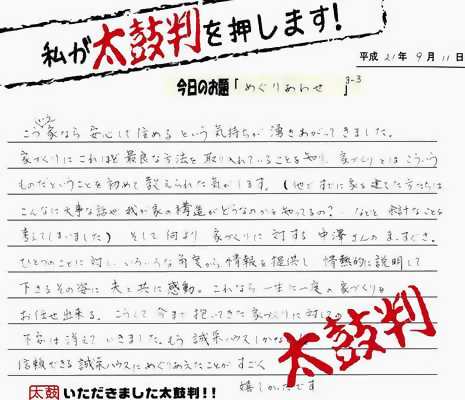 私が太鼓判を押します!
平成21年9月11日
今日のお題「めぐりあわせ」
こういう家なら安心して住めるという気持ちが湧きあがってきました。
家づくりにこれほど最良な方法を取り入れていることを知り、家づくりとはこういう
ものだということを初めて教えられた気がします。(他ですでに家を建てた方たちは
こんなに大事な話や我が家の構造がどうなのかを知ってるの?などと余計なことを
考えてしまいました)そして何より家づくりに対する中澤さんのまっすぐさ。
ひとつのことに対し、いろいろな角度から情報を提供し情熱的に説明して
下さるその姿に夫と共に感動。これなら一生に一度の家づくりを
お任せ出来る。こうして今まで抱いてきた家づくりに対しての
不安は消えていきました。もう誠采ハウスしかない
信頼できる誠采ハウスにめぐりあえたことがすごく
嬉しかったです
太鼓判
太鼓いただきました太鼓判!!